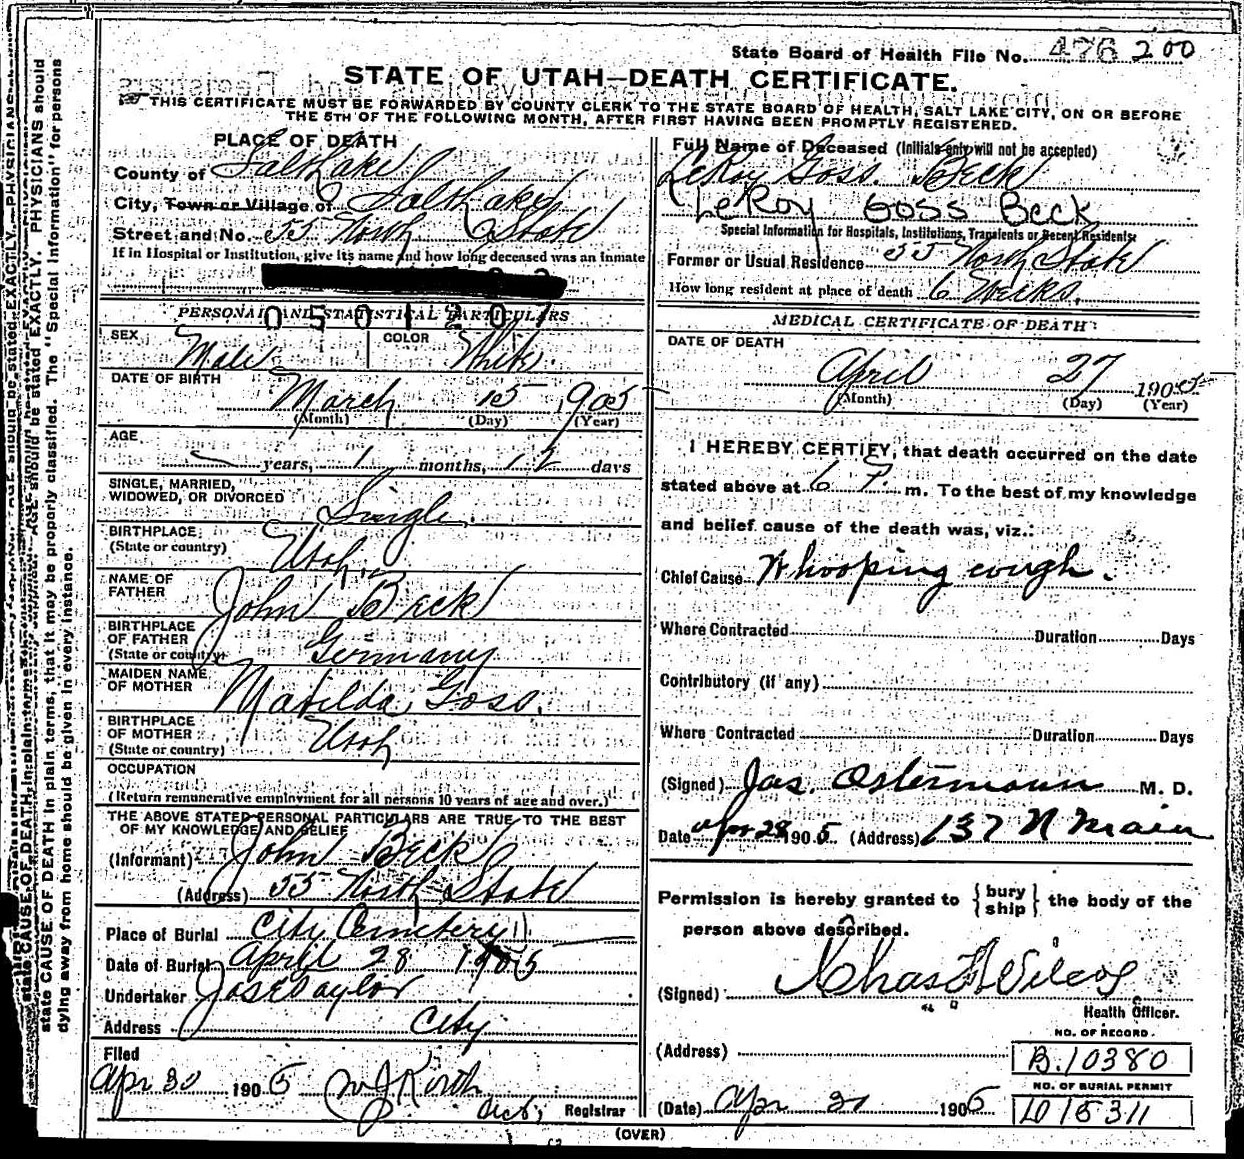 State Board of Health File No. 476 200
STATE OF UTAH—DEATH CERTIFICATE.
THIS CERTIFICATE MUST BE FORWARDED BY COUNTY CLERK TO THE STATE BOARD OF HEALTH, SALT LAKE CITY, ON OR BEFORE
THE 5TH OF THE FOLLOWING MONTH, AFTER FIRST HAVING BEEN PROMPTLY REGISTERED.
PLACE OF DEATH
County of Salt Lake
City, Town or Village of Salt Lake
Street and No. 55 North State
If in Hospital or Institution, give its name and how long deceased was an inmate
0501207
PERSONAL AND STATISTICAL PARTICULARS
SEX Male COLOR White
DATE OF BIRTH
March 15 1905
(Month) (Day) (Year)
AGE
years, 1 months, 12 days
SINGLE, MARRIED,
WIDOWED, OR DIVORCED Single
BIRTHPLACE
(State or country) Utah
NAME OF
FATHER John Beck
BIRTHPLACE
OF FATHER
(State or country) Germany
MAIDEN NAME
OF MOTHER Matilda Goss.
BIRTHPLACE
OF MOTHER
(State or country) Utah
OCCUPATION
(Return remunerative employment for all persons 10 years of age and over.)
THE ABOVE STATED PERSONAL PARTICULARS ARE TRUE TO THE BEST
OF MY KNOWLEDGE AND BELIEF
(Informant) John Beck
(Address) 55 North State
Place of Burial City Cemetery
Date of Burial April 28 1905
Undertaker Jos E Taylor
Address City
Filed
Apr 30 1905
Registrar
Full Name of Deceased (Initials only will not be accepted)
LeRoy Goss Beck
LeRoy Goss Beck
Special Information for Hospitals, Institutions, Transients or Recent Residents:
Former or Usual Residence 55 North State
How long resident at place of death 6 Weeks.
MEDICAL CERTIFICATE OF DEATH
DATE OF DEATH
April 27 1905
(Month) (Day) (Year)
I HEREBY CERTIFY, that death occurred on the date
stated above at 6 P. m. To the best of my knowledge
and belief cause of the death was, viz.:
Chief Cause Whooping cough.
Where Contracted Duration Days
Contributory (if any)
Where Contracted Duration Days
(Signed) Jas. Ostermann M. D.
Date Apr 28 1905. (Address) 137 N Main
Permission is hereby granted to {bury ship} the body of the
person above described.
(Signed) Chas F Wilcox
Health Officer.
(Address)
NO. OF RECORD.
B.10380
NO. OF BURIAL PERMIT
(Date) Apr 1905
(OVER)
state CAUSE OF DEATH in plain terms, that it may be properly classified. The "Special Information" for persons
dying away from home should be given in every instance.
AGE should be stated EXACTLY. PHYSICIANS should